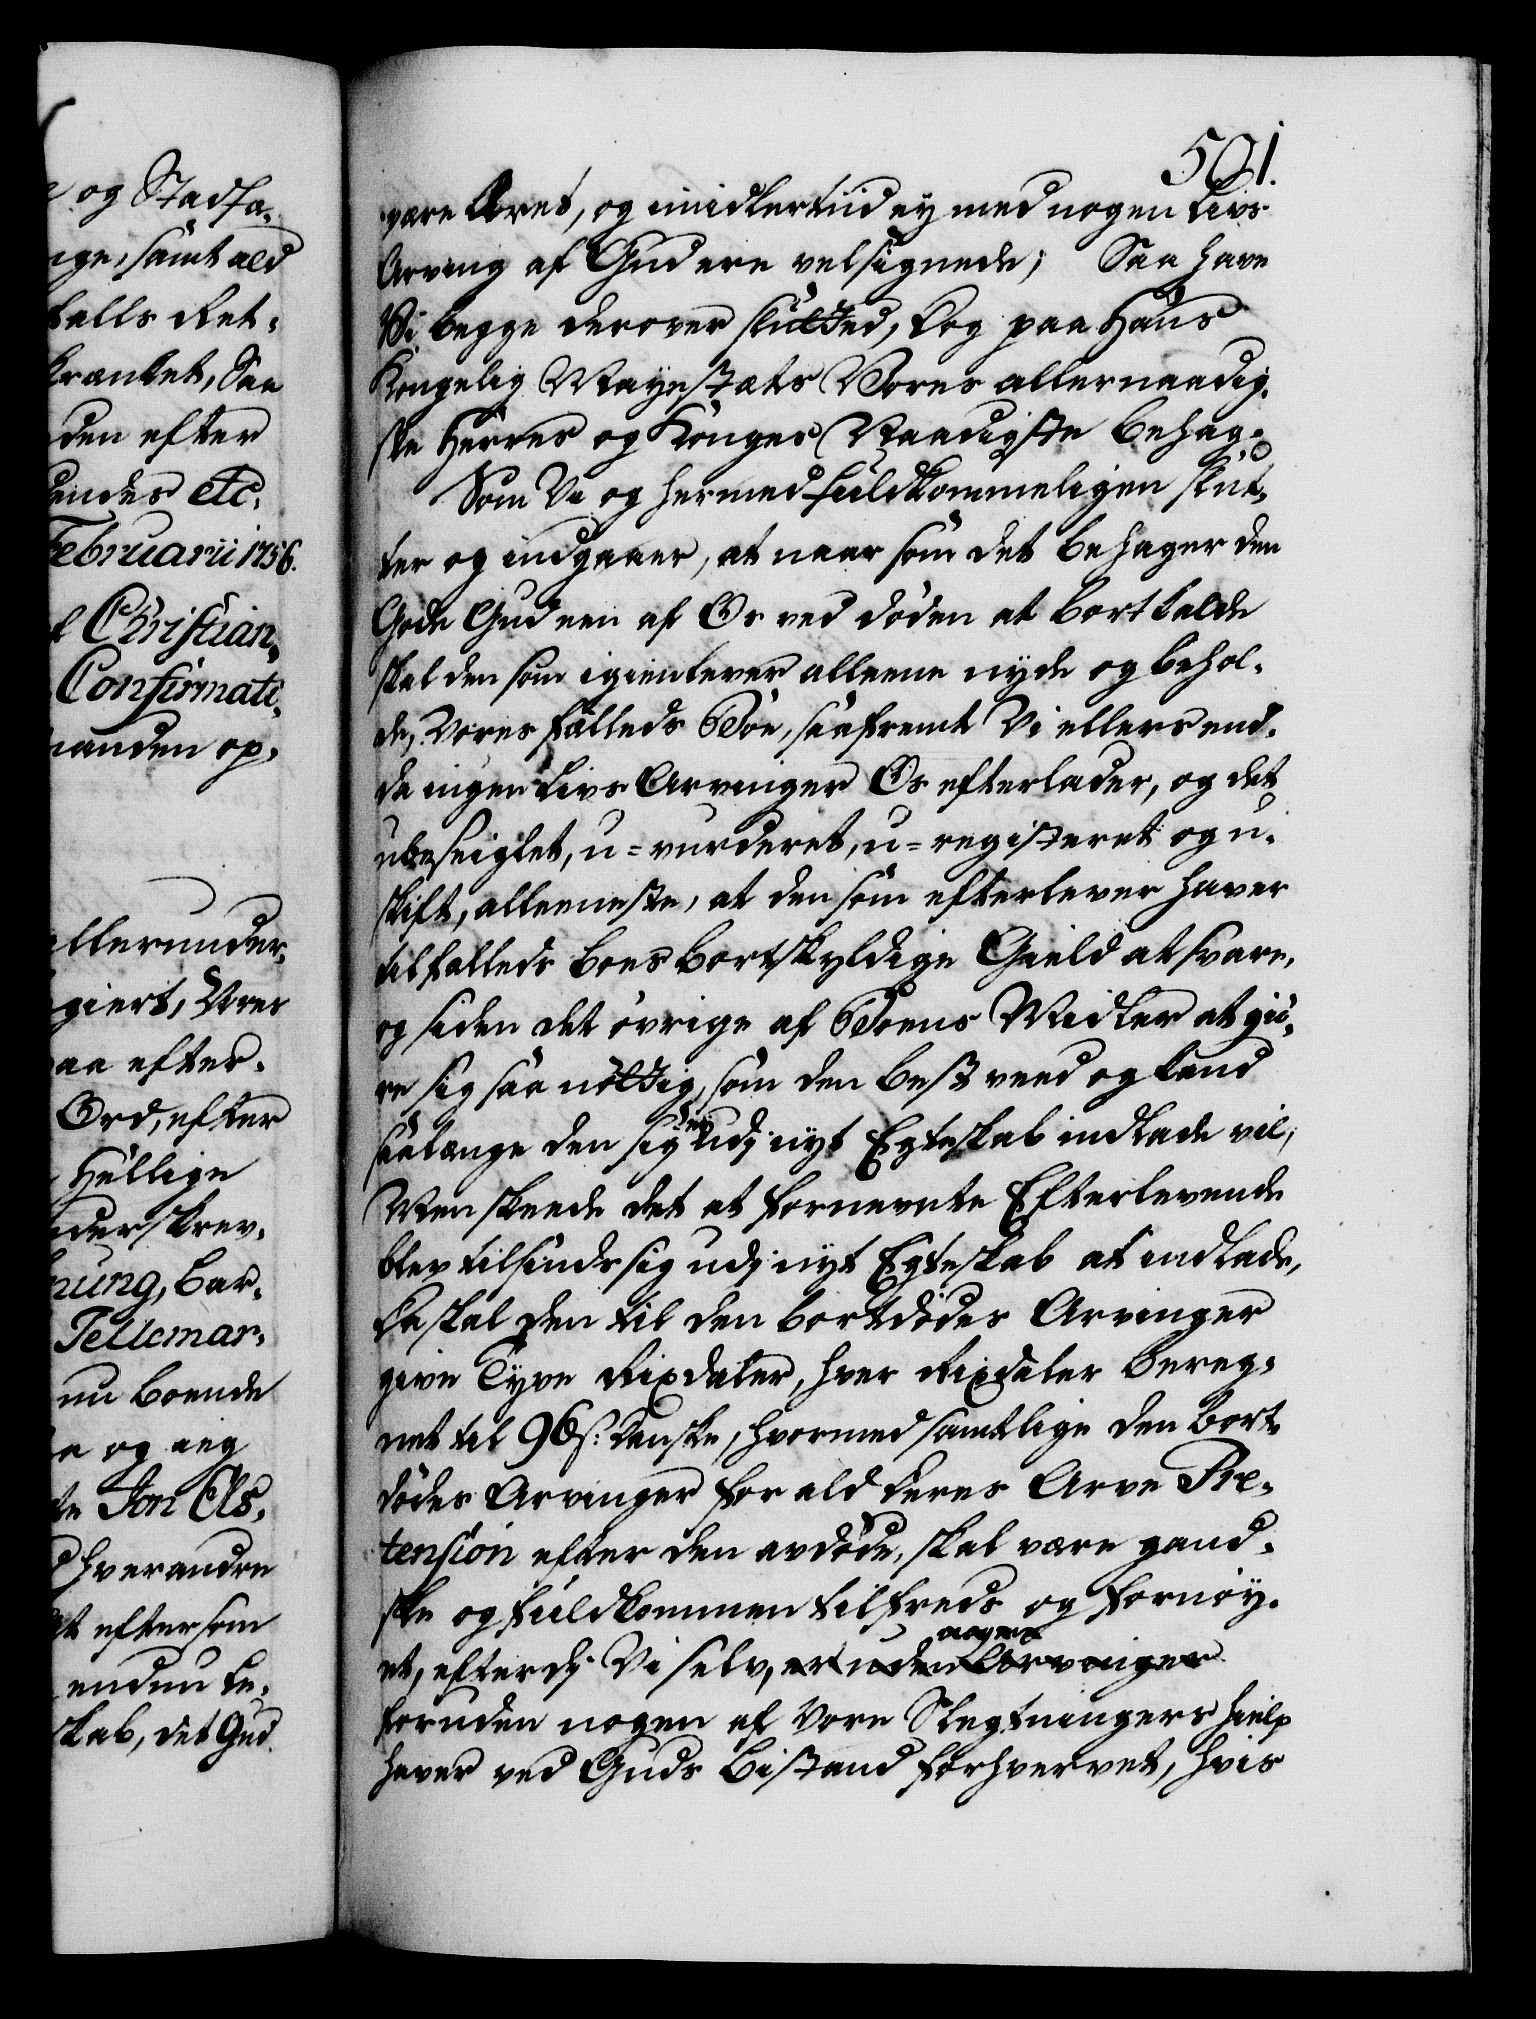 og Stadfæ-
ige, samt ald
falls Ret-
krænket, Saa
den efter
kendes etc.
Februarii 1756.
Christian,
Confirmati-
nanden op-
allerunder-
giert, Vores
paa efter-
Ord, efter
Hellige
nderskrev-
nung, bar-
Tellemar-
nu boende
og ieg
Jon Els-
hverandre
efter som
endnu le-
skab, det Gud
501.
være Æret, og imidlertiid ey med nogen Livs
Arving af Gud ere velsignede; Saa have
Vi begge derover sluttet, dog paa Hans
Kongelig Mayestæts Vores allernaadig-
ste Herres og Konges Naadigste behag.
Som Vi og hermed fuldkommeligen slut-
ter og indgaaer, at naar som det behager den
Gode Gud een af Os ved døden at bortkalde
skal den som igienlever alleene nyde og behol-
de, Vores fælleds Boe, saafremt Vi ellers end-
da ingen Livs Arvinger Os efterlader, og det
ubeseiglet, u-vurderet, u-registeret og u-
skift, alleeneste, at den som efterlever haver
til fælleds boes bortskyldige Gield at svare,
og siden det øvrige af Boens Midler at giø-
re sig saa nøttig, som den best veed og kand
saalænge den sig ey udj nyt Egteskab indlade vil,
Men skeede det at fornevnte Efterlevende
blev tilsinds sig udj nyt Egteskab at indlade,
da skal den til den bortdødes Arvinger
give Tyve Rixdaler, hver Rixdaler bereg-
net til 96 s: danske, hvormed samtlige den bort-
dødes Arvinger for ald deres Arve Præ-
tension efter den avdøde, skal være gand-
ske og fuldkommen tilfreds og fornøy-
et, efterdj Vi selv, er uden nogen Arvinger
foruden nogen af Vore Slegtningers hielp
haver ved Guds bistand forhvervet, hvis